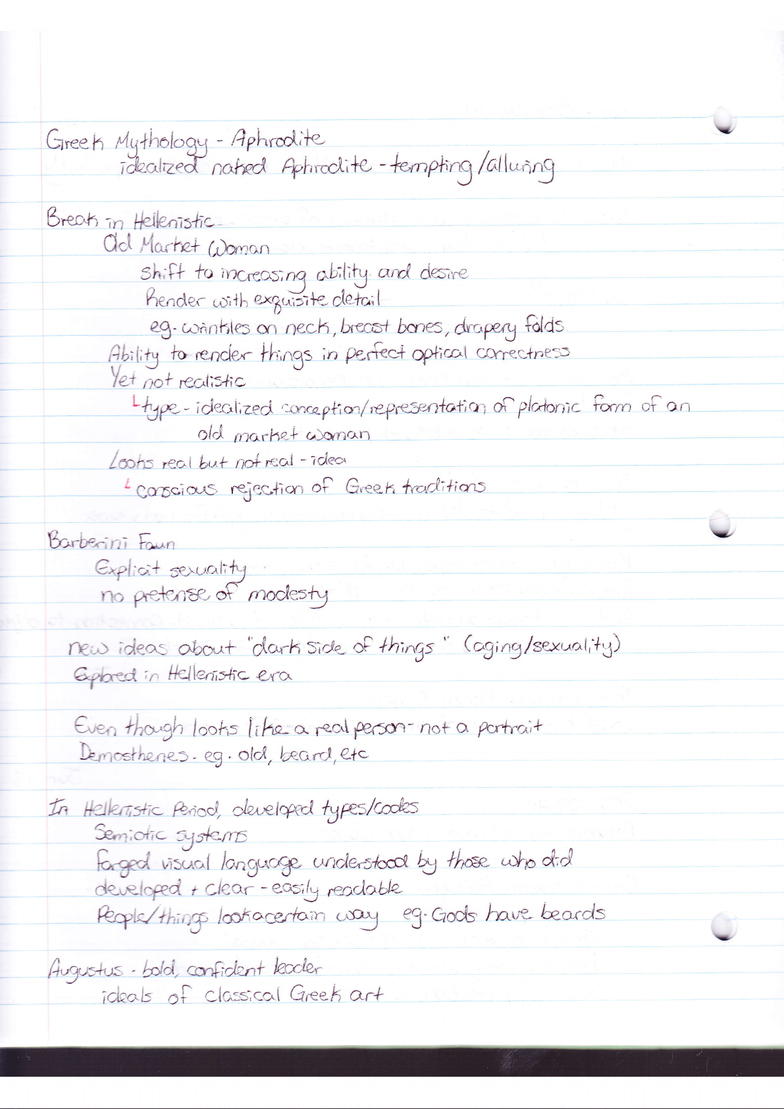 Greek Mythology - Aphrodite
idealized naked Aphrodite - tempting/alluring
Break in Hellenistic
Old Market Woman
shift to increasing ability and desire
Render with exquisite detail
eg. wrinkles on neck, breast bones, drapery folds
Ability to render things in perfect optical correctness
Yet not realistic
↳ type - idealized conception/representation of platonic form of an
old market woman
Looks real but not real - idea
↳ conscious rejection of Greek traditions
Barberini Faun
Explicit sexuality
no pretense of modesty
new ideas about "dark side of things" (aging/sexuality)
Explored in Hellenistic era
Even though looks like a real person - not a portrait
Demosthenes. eg. old, beard, etc
In Hellenistic Period, developed types/codes
Semiotic systems
Forged visual language understood by those who did
developed + clear - easily readable
People/things look a certain way eg. Gods have beards
Augustus - bold, confident leader
ideals of classical Greek art